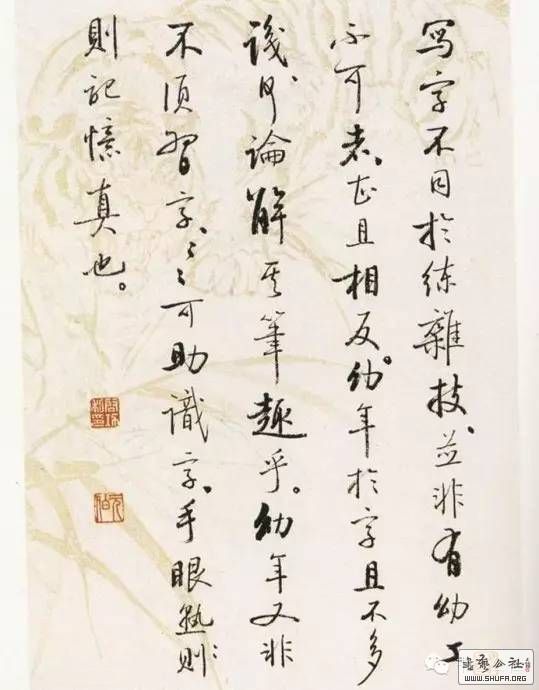 寫字不同於練雜技、並非有幼工
不可者、甚且相反。幼年於字且不多
識、何論解其筆趣乎。幼年又非
不須習字、〻〻可助識字、手眼熟則
則記憶真也。
書藝公社
WWW.SHUFA.ORG